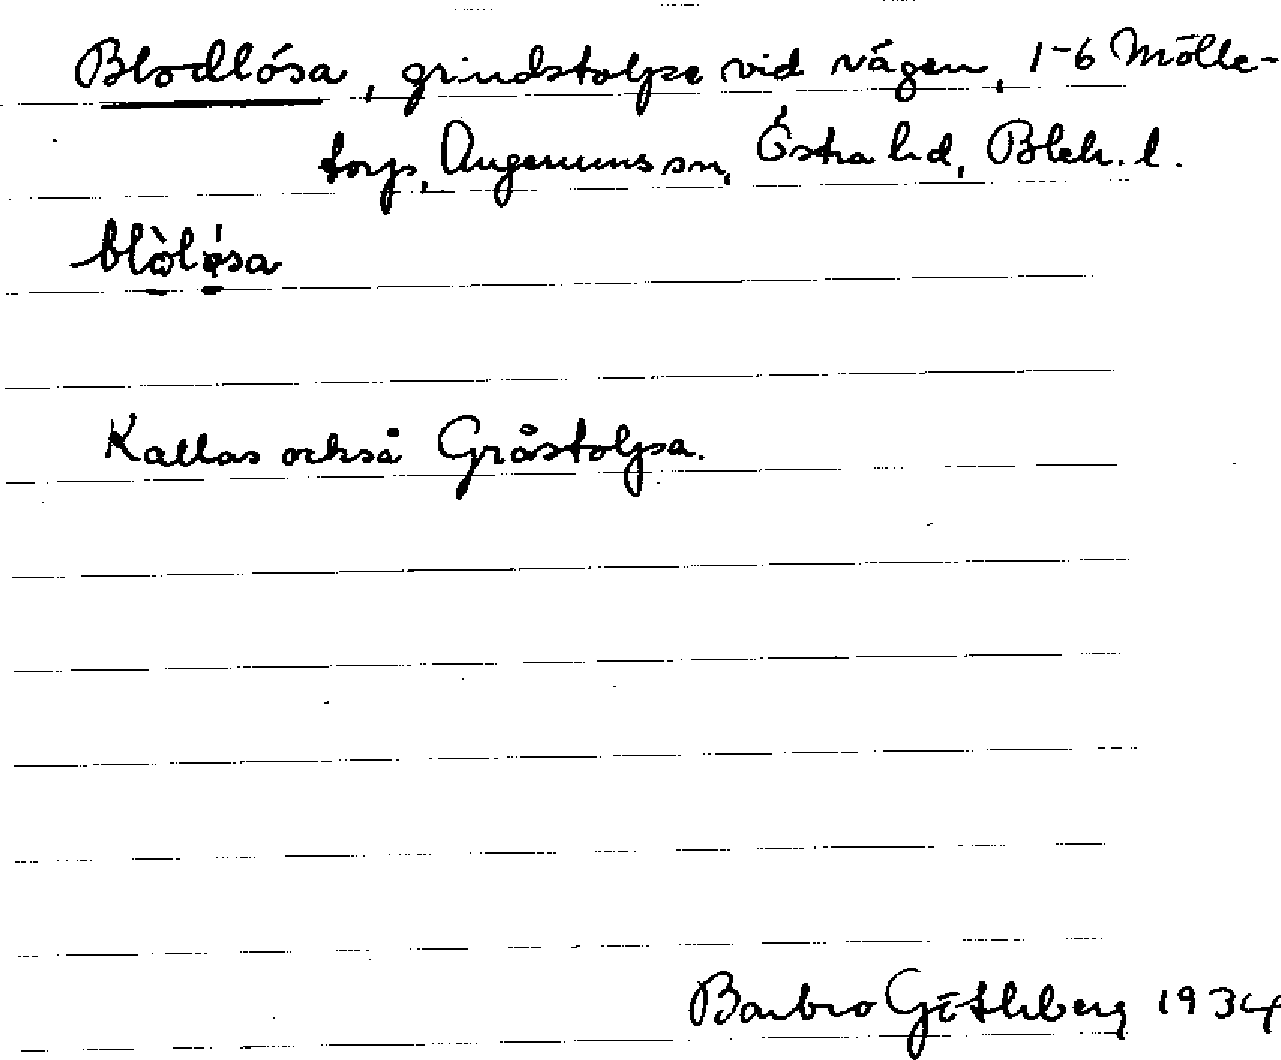 Blodlösa, grindstolpe vid vägen, 1-6 Mölle-
torp, Augerums sn, Östra hd, Blek. l.
blòlǿ̣sa
Kallas också Gråstolpa.
Barbro Götleberg 1934